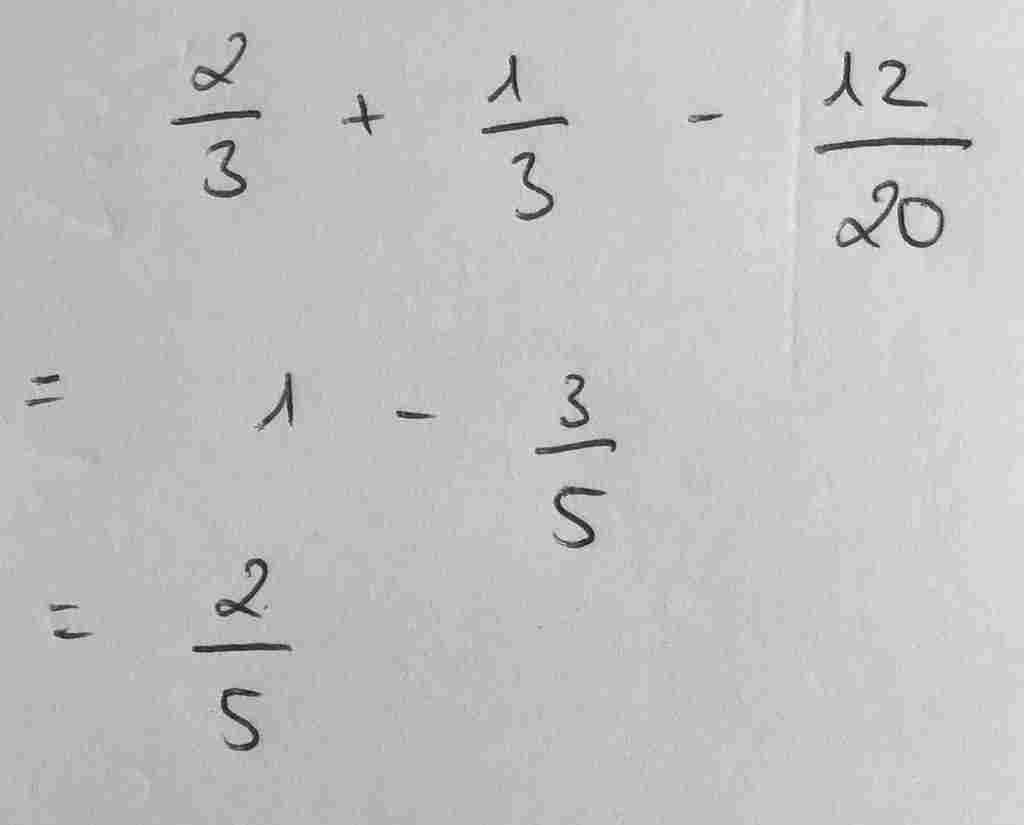 2/3 + 1/3 - 12/20
= 1 - 3/5
= 2/5